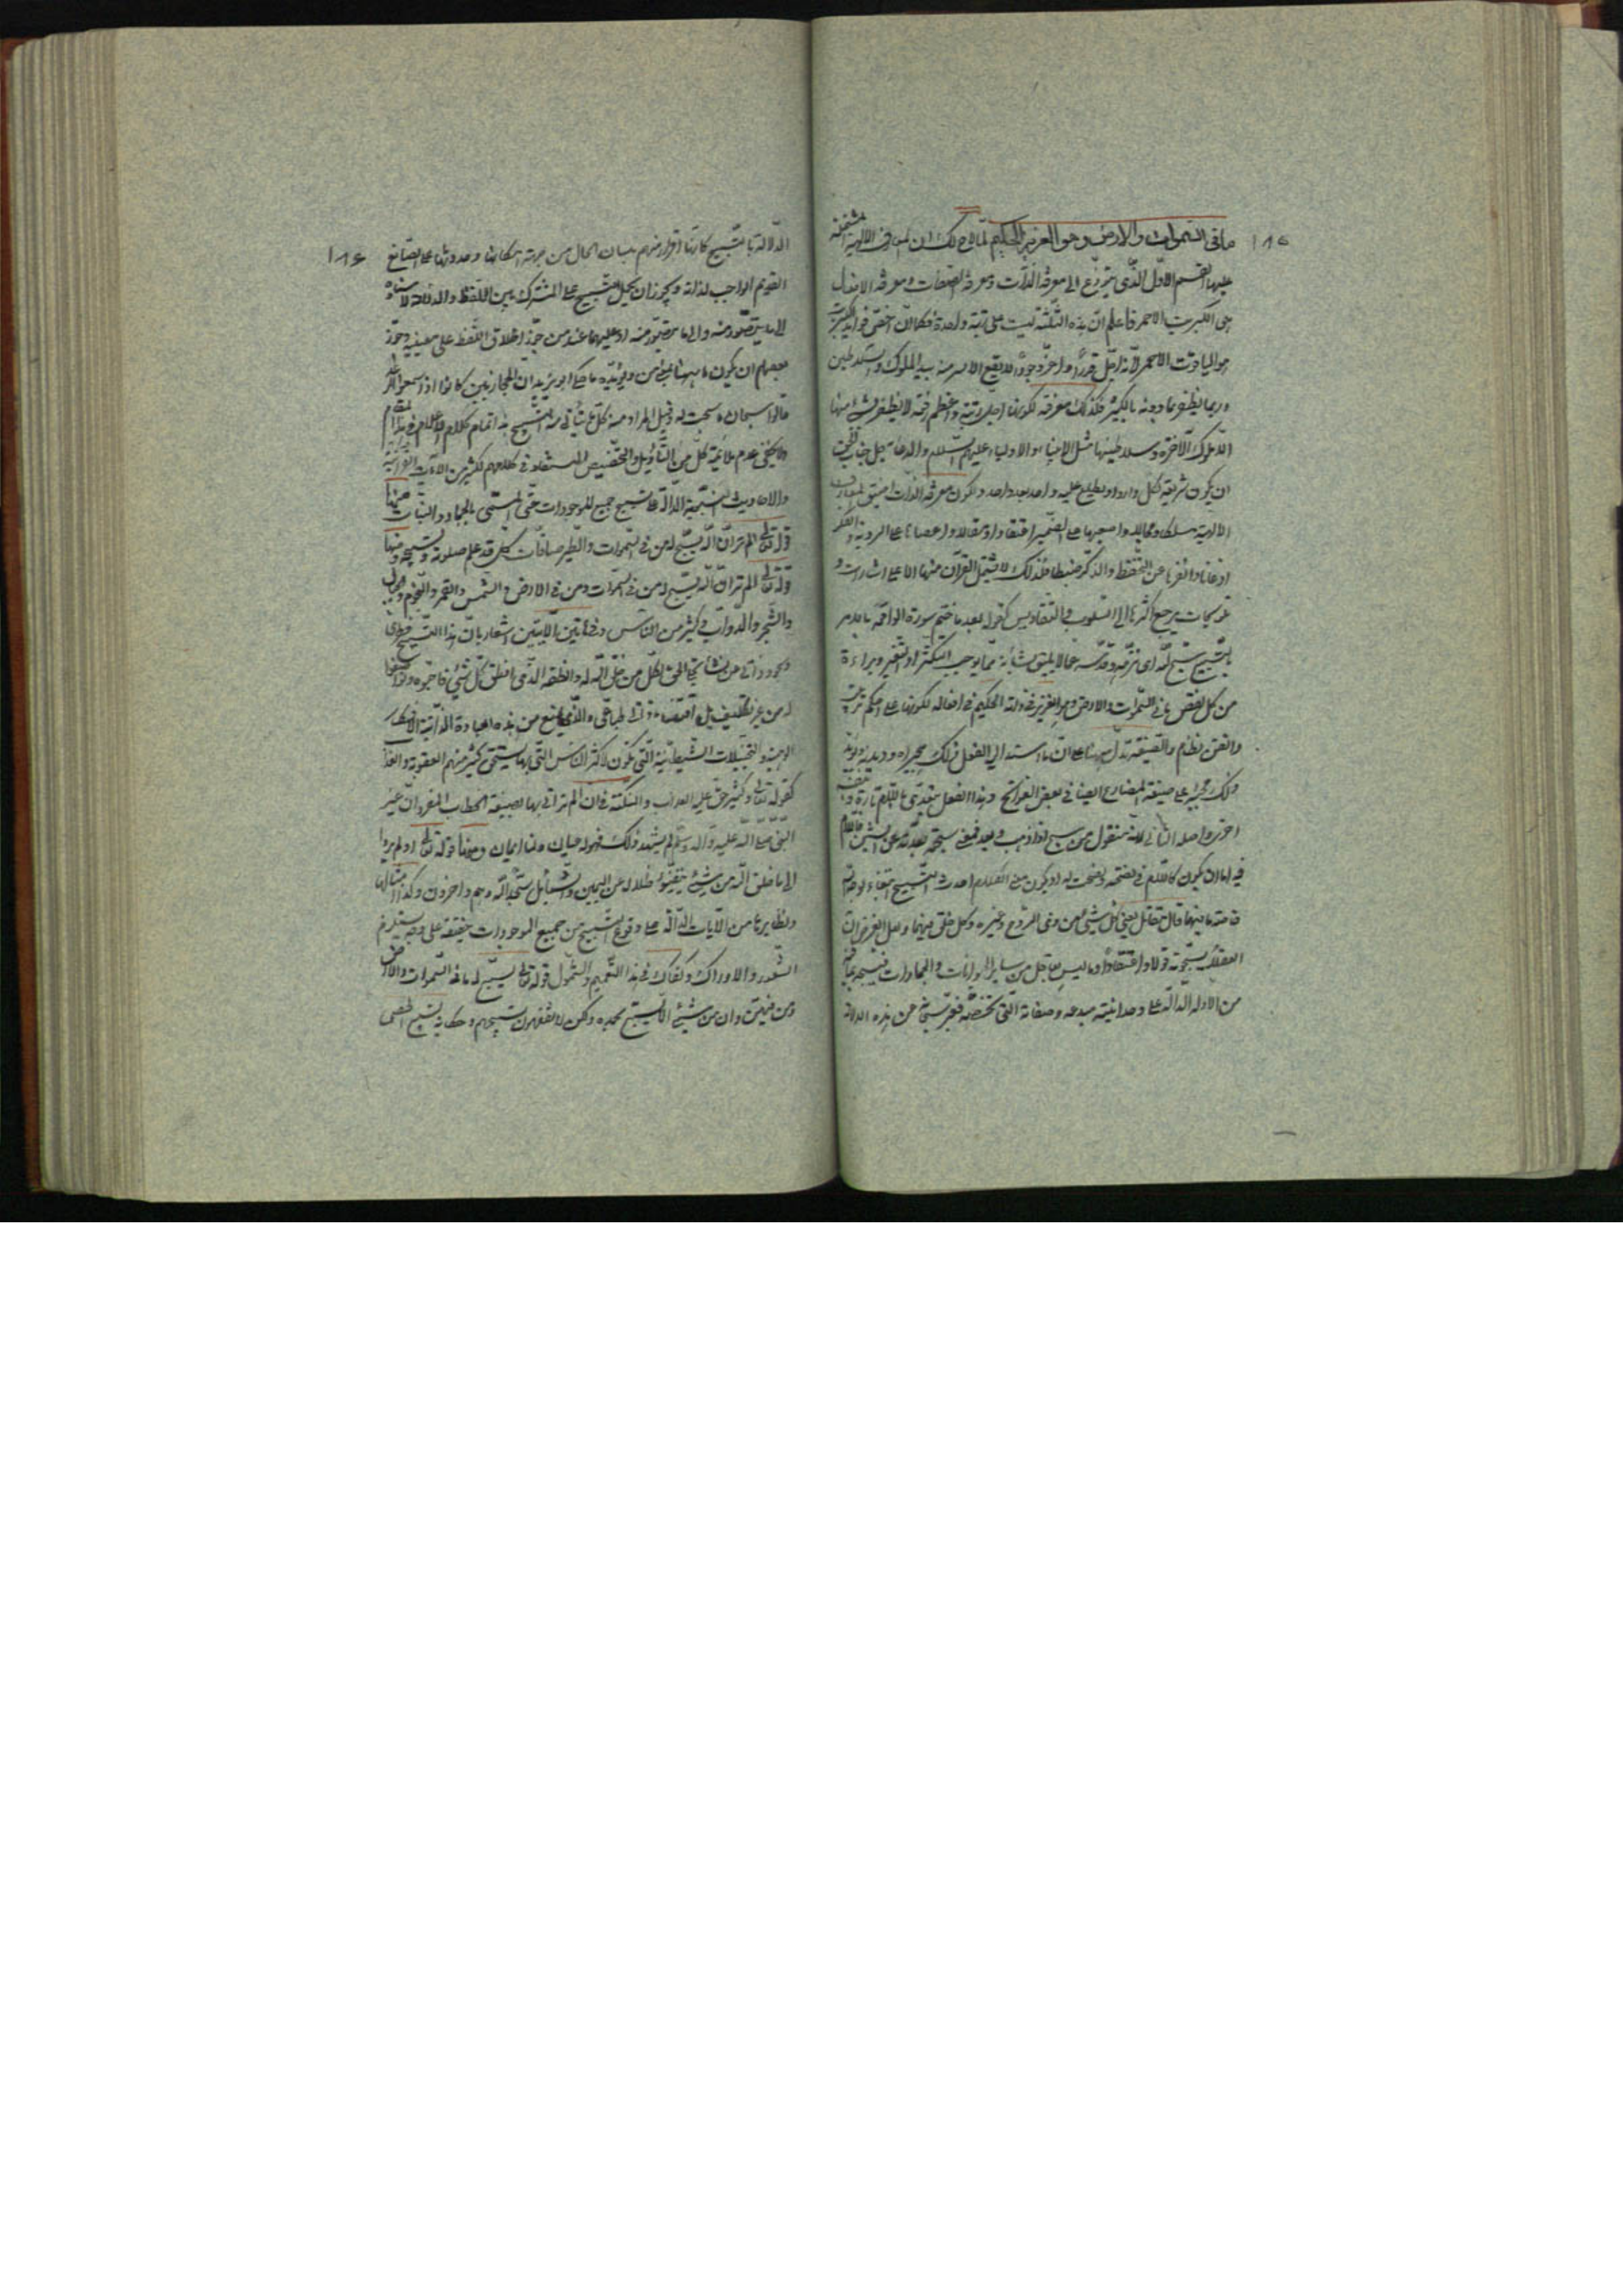 ١٨٥
ما فى السموات والارض وهو العزيز الحكيم لما لاح لك ان المعارف الالهية المشتملة
عليها القسم الاول الذى يتوزع الى معرفة الذات ومعرفة الصفات ومعرفة الافعال
هى الكبريت الاحمر فاعلم ان هذه الثلثة ليست على رتبة واحدة فكما ان اخص فوايد الكبريت
هو الياقوت الاحمر لانه اجل قدرا واعز وجودا لا يقع الا يسير منه بيد الملوك والسلاطين
وربما يظفر بما دونه بالكثير فكذلك معرفته لكونها اجل رتبة واعظم لا يظفر بشئ منها
الا ملوك الآخرة وسلاطينها مثل الانبياء والاولياء عليهم السلام والدعاة جل جناب الحق
ان يكون شريعة لكل وارد او يطلع عليه واحد بعد واحد ولكون معرفة الذات اضيق المعارف
الالهية مسلكا ومجالا واصعبها على الضمير اعتقادا ومقالا واعصاها على الروية والفكر
اذعانا وانفرها عن التحفظ والذكر ضبطا فلذلك لا يشتمل القرآن منها الا على اشارات و
تلويحات يرجع اكثرها الى السلوب والتقاديس كقوله بعد ما ختم سورة الواقعة بالامر
بالتسبيح سبح لله اى نزهه وقدسه عما لا يليق بشأنه مما يوجب التكثر او التغير وبراءة
من كل نقص ما فى السموات والارض وهو العزيز فى ذاته الحكيم فى افعاله لكونها على احكم ترتيب
واتقن نظام والصيغة تدل ههنا على ان ما اسند اليه الفعل فذلك هجيراه وديدنه ويؤيد
ذلك مجيئه على صيغة المضارع ايضا فى بعض الفواتح وهذا الفعل يتعدى باللام تارة وبنفسه
اخرى واصله الثانى لانه منقول من سبح اذا ذهب وبعد فمعنى سبحته بعدته عن السوء فاللام
فيه اما ان يكون كاللام فى نصحته ونصحت له او يكون معنى الكلام احدث التسبيح ابتغاء لوجه الله
خاصة ما فيهما قال مقاتل يعنى كل شئ من ذى الروح وغيره وكل خلق فيهما ولعل الغرض ان
العقلاء يسبحونه قولا واعتقادا وما ليس بعاقل من ساير الحيوانات والجمادات فتسبيحه بما فيه
من الادلة الدالة على وحدانية مبدعه وصفاته التى تختص به فعبر سبحانه عن هذه الدلالة
١٨٦
الدلالة بالتسبيح كانها اقرار منهم بلسان الحال من جهة امكانها وحدوثها على الصانع
القديم الواجب لذاته ويجوز ان يحمل التسبيح على المشترك بين اللفظ والدلالة لاسناده
الى ما يتصور منه والى ما لا يتصور منه او عليهما عند من جوز اطلاق اللفظ على معنييه وجوز
بعضهم ان يكون ما ههنا بمعنى من ويؤيده ما حكى ابو زيد ان الحجازيين كانوا اذا سمعوا الرعد
قالوا سبحان ما سبحت له وقيل المراد منه كل ما يتأتى منه التسبيح هذا تمام كلام الاعلام فى هذا المقام
ولا يخفى عدم ملائمة كل من التأويل والتخصيص المستفاد فى كلامهم لكثير من الآيات القرآنية
والاحاديث الدالة على تسبيح جميع الموجودات حتى المسمى بالجماد والنبات منها
قوله تعالى الم تر ان الله يسبح له من فى السموات والطير صافات كل قد علم صلوته وتسبيحه ومنها
قوله تعالى الم تر ان الله يسبح له من فى السموات ومن فى الارض والشمس والقمر والنجوم والجبال
والشجر والدواب وكثير من الناس وفى هاتين الآيتين اشعار بان هذا التسبيح فطرى
وسجود ذاتى عن تجلى الحق لكل من خلق الله له وانطقه الذى انطق كل شئ فاحبوه وتواضعوا
له من غير تكليف بل اقتضاء ذاتى طباعى والذى يمنع من هذه العبادة الذاتية الافكار
الوهمية والتخيلات الشيطانية التى تكون لاكثر الناس التى بها يستحق كثير منهم العقوبة والعذاب
كقوله تعالى وكثير حق عليه العذاب والنكتة فى ان الم تر اتى بها بصيغة الخطاب المفرد ان غير
النبى صلى الله عليه وآله وسلم لم يشهد ذلك فهو له عيان ولنا ايمان ومنها قوله تعالى اولم يروا
الى ما خلق الله من شئ يتفيؤ ظلاله عن اليمين والشمايل سجدا لله وهم داخرون وكذا امثالها
ونظايرها من الآيات الدالة على وقوع التسبيح من جميع الموجودات حقيقة على وجه يستلزم
الشعور والادراك وكفاك فى هذا التعميم والشمول قوله تعالى يسبح له ما فى السموات والارض
ومن فيهن وان من شئ الا يسبح بحمده ولكن لا تفقهون تسبيحهم وحكاية تسبيح الحصى